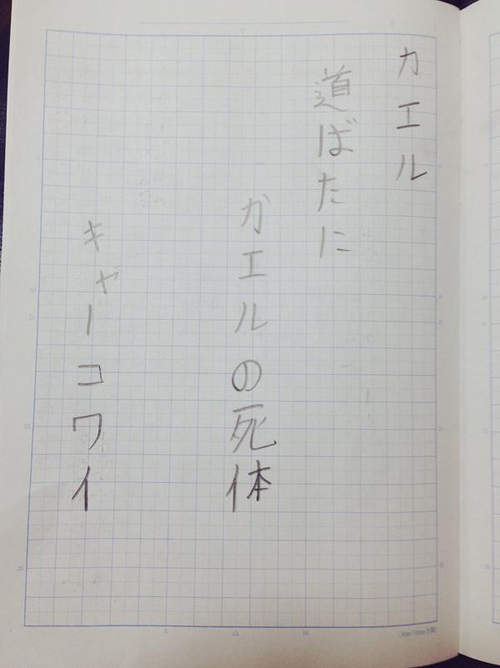 カエル
道ばたに
カエルの死体
キャーコワイ